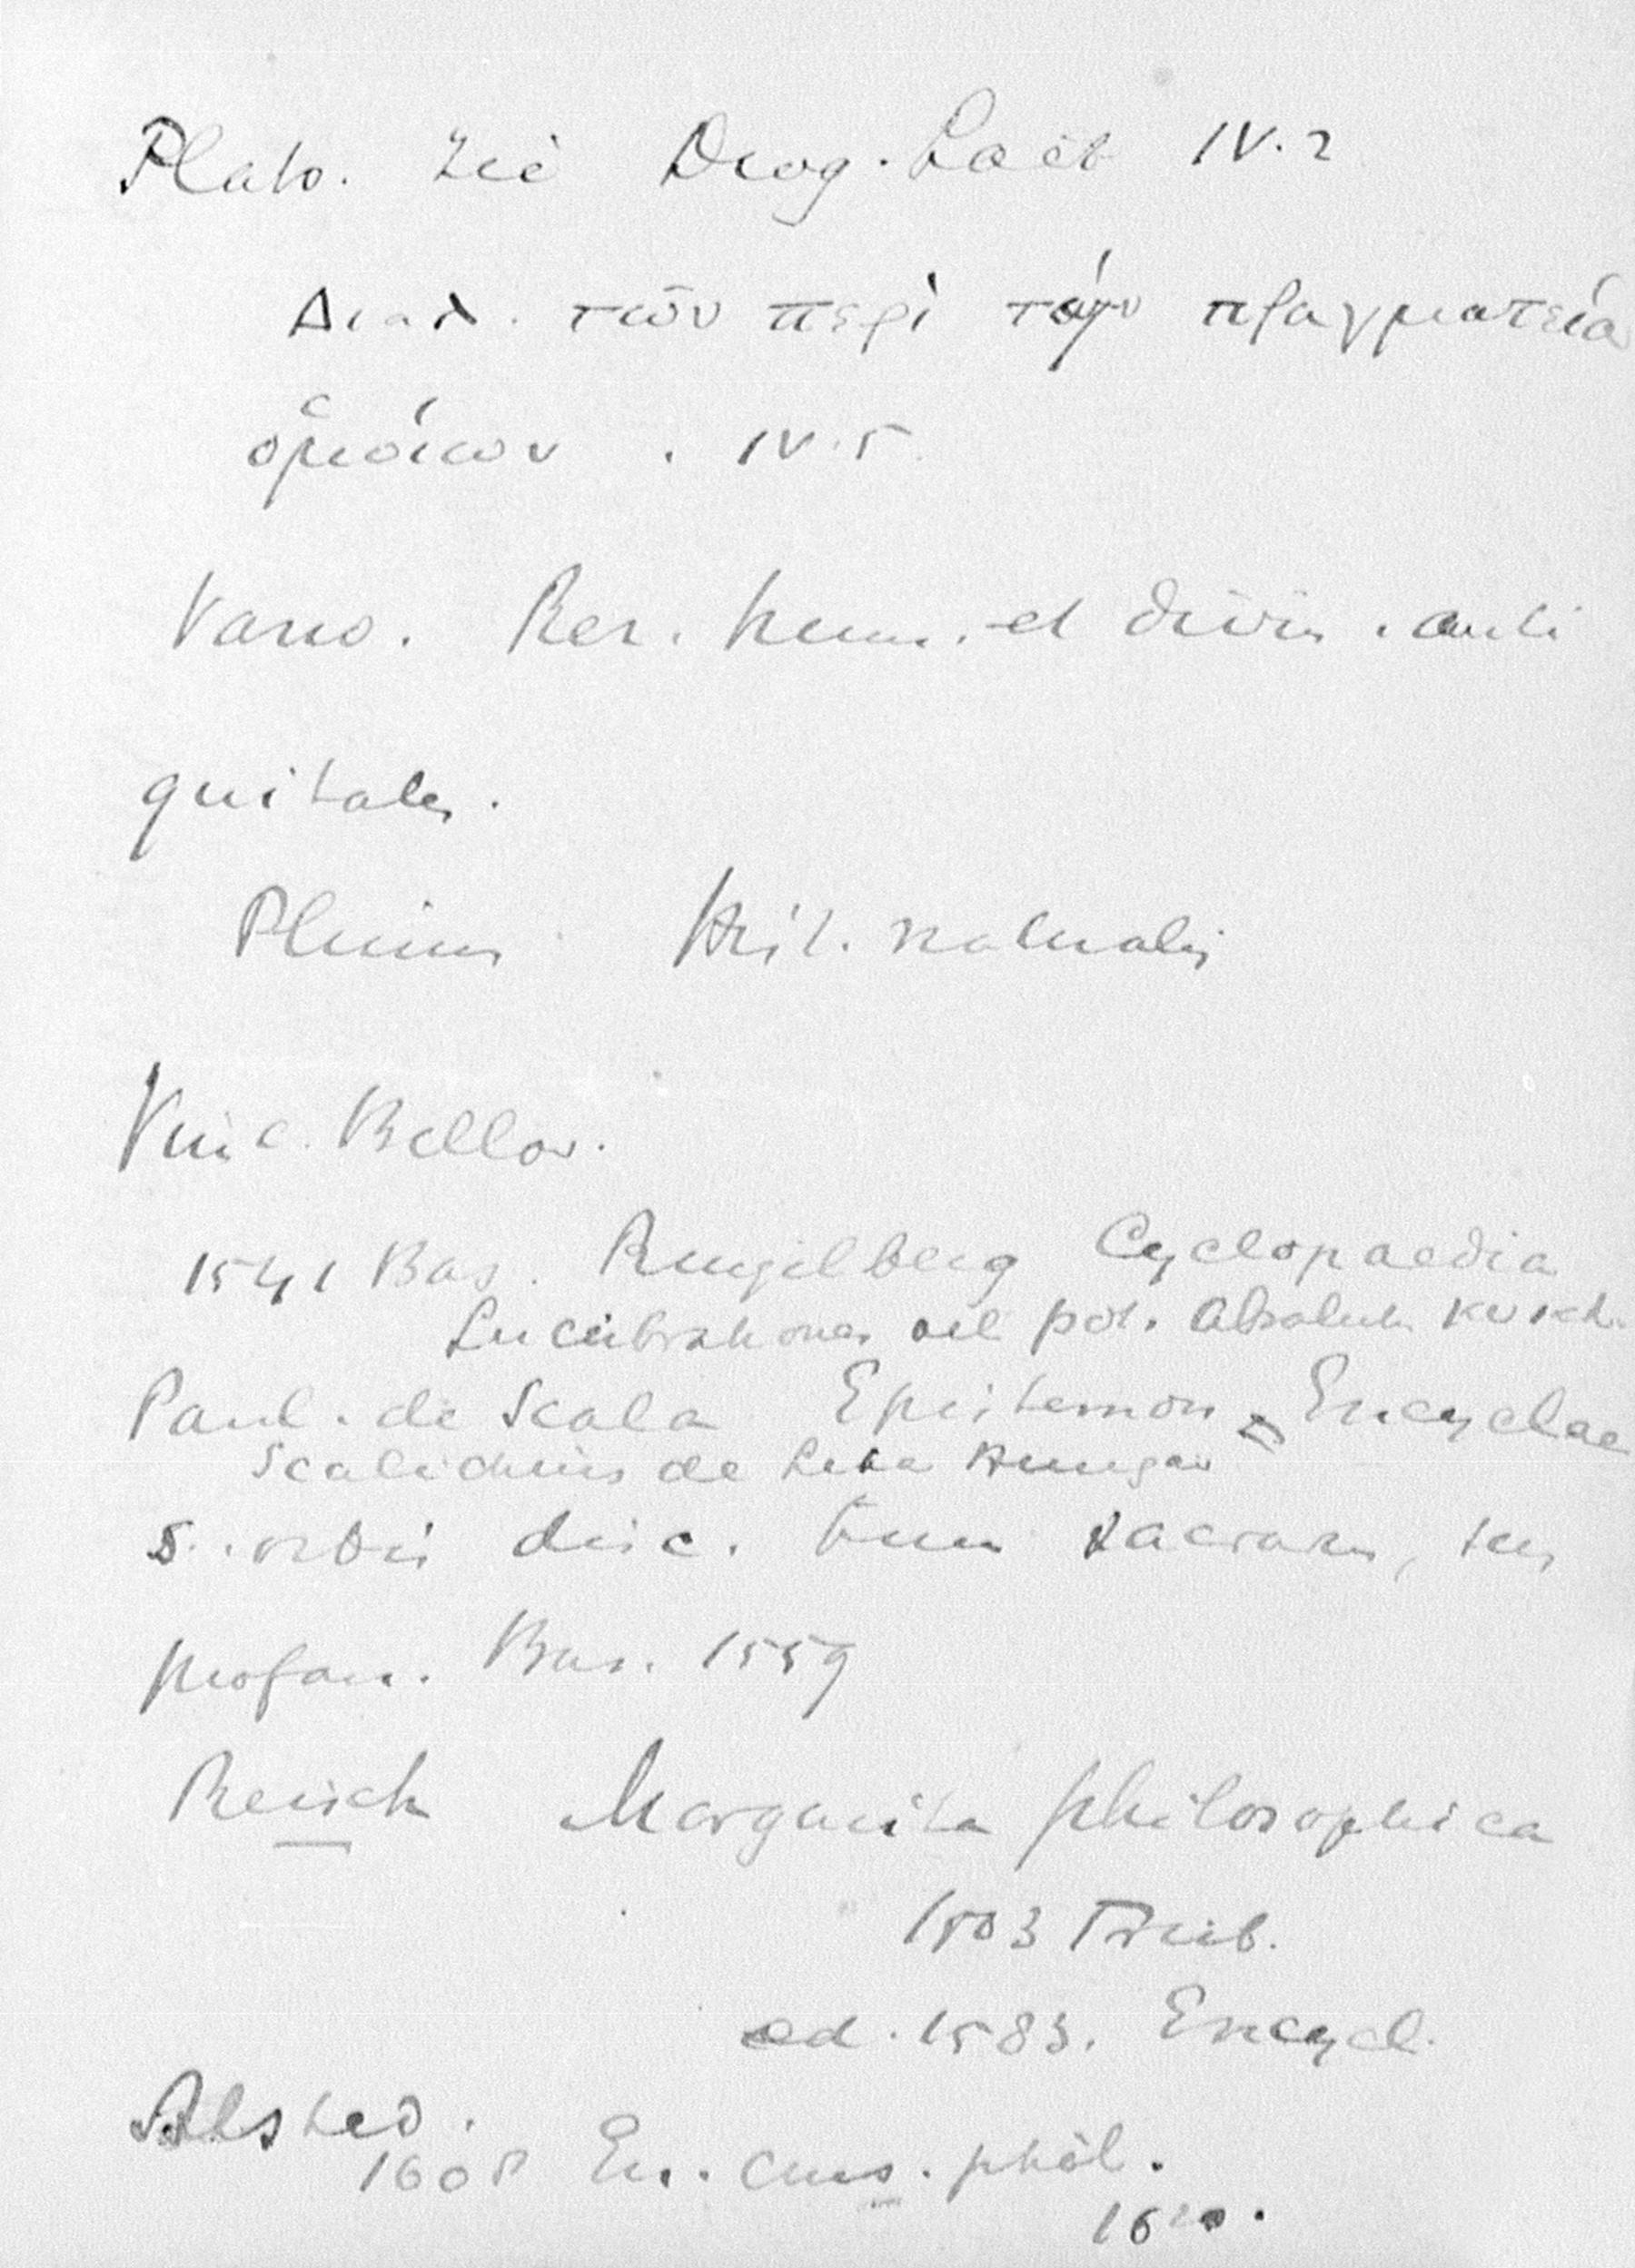 Plato. Diog. Laët IV.2
Διαλ. τῶν περὶ τὴν πραγματεία
ὁμοίων . IV.5
Varro. Rer. hum. et divin. anti
quitates.
Plinius Hist. naturalis
Vinc. Bellov.
1541 Bas. Ringelberg Cyclopaedia
Lucubrationes vel pot. absolut.
Paul. de Scala Epistemon Encyclae
Scalichius de Lika Hungar
s. orbis disc. tum sacrarum, tum
profan. Bas. 1559
Reisch Margarita philosophica
1503 Freib.
ed. 1583. Encycl.
Alsted.
1608 En. curs. phil.
1620.